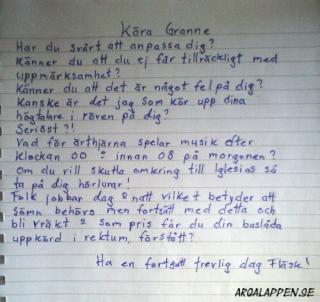 Kära Granne
Har du svårt att anpassa dig?
Känner du att du ej får tillräckligt med
uppmärksamhet?
Känner du att det är något fel på dig?
Kanske är det jag som kör upp dina
högtalre i röven på dig?
Seriöst?!
Vad för ärthjärna spelar musik efter
klockan 00 & innan 08 på morgonen?
Om du vill skutta omkring till Iglesias så
ta på dig hörlurar!
Folk jobbar dag & natt vilket betyder att
sömn behövs men fortsätt med detta och
bli vräkt & som pris får du din baslåda
uppkörd i rektum, förstått?
Ha en fortsatt trevlig dag Fläsk!
ARGALAPPEN.SE